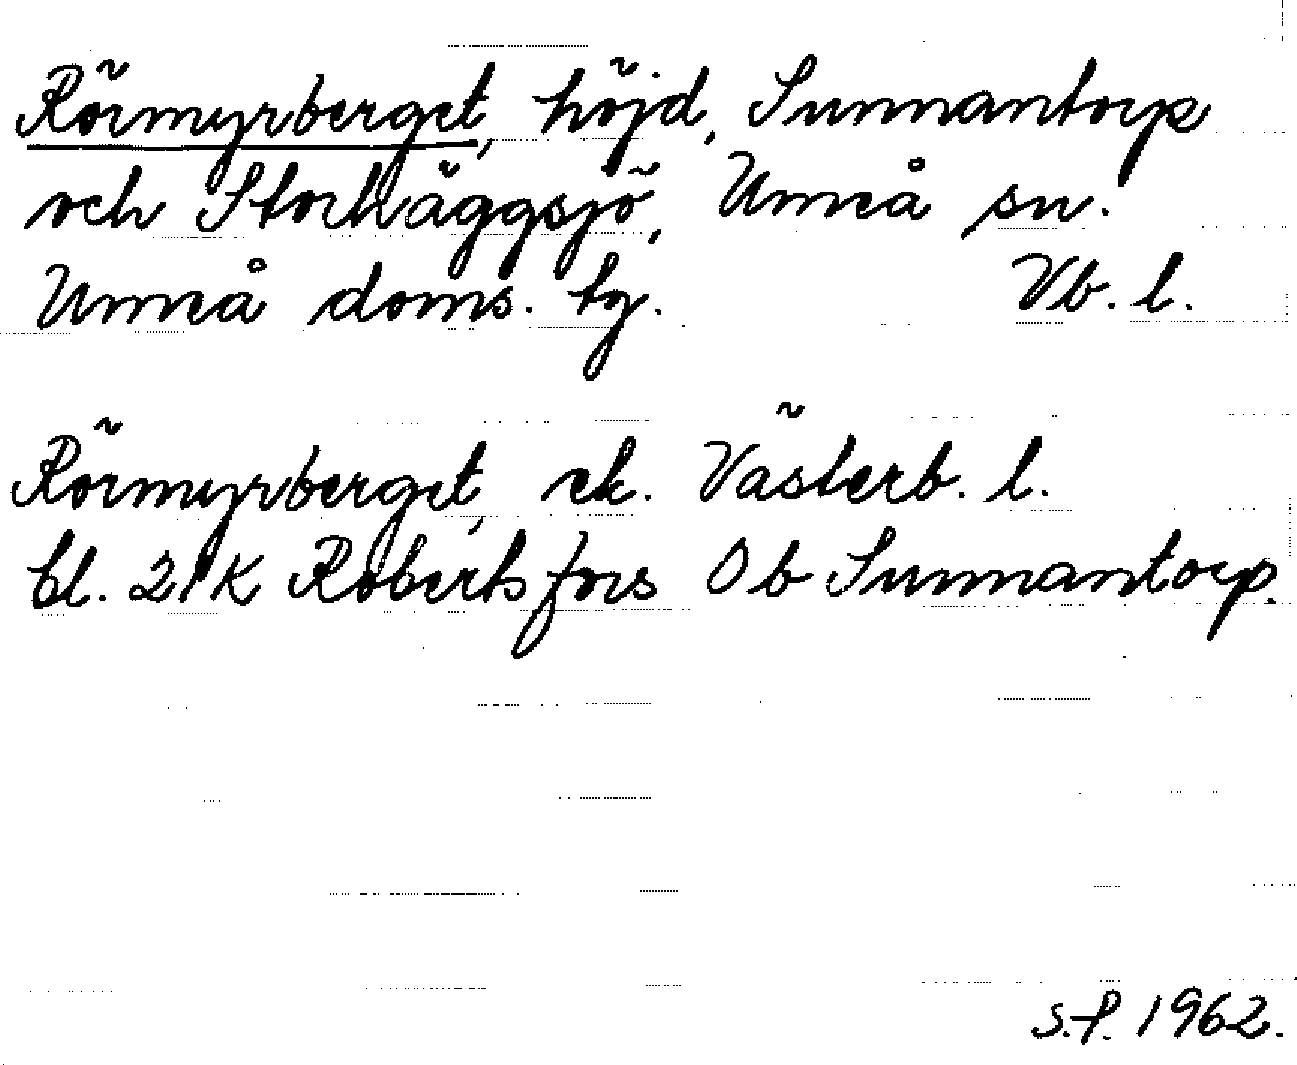 Rörmyrberget, höjd, Sunnantorp
och Storhäggsjö, Umeå sn.
Umeå doms. tg. Vb. l.
Rörmyrberget, ek. Västerb. l.
bl. 21K Robertsfors 0b Sunnantorp.
s.f. 1962.